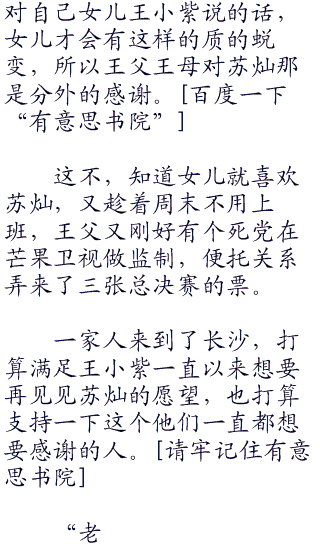 对自己女儿王小紫说的话，
女儿才会有这样的质的蜕
变，所以王父王母对苏灿那
是分外的感谢。[百度一下
“有意思书院”]
这不，知道女儿就喜欢
苏灿，又趁着周末不用上
班，王父又刚好有个死党在
芒果卫视做监制，便托关系
弄来了三张总决赛的票。
一家人来到了长沙，打
算满足王小紫一直以来想要
再见见苏灿的愿望，也打算
支持一下这个他们一直都想
要感谢的人。[请牢记住有意
思书院]
“老